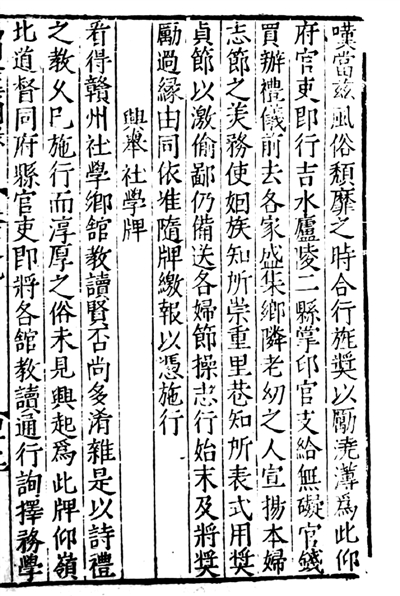 嘆當兹風俗頽靡之時合行旌奬以勵澆薄爲此仰
府官吏即行吉水廬陵二縣掌印官支給無礙官錢
買辦禮儀前去各家盛集鄉隣老幼之人宣揚本婦
志節之美務使姻族知所崇重里巷知所表式用奬
貞節以激偷鄙仍備送各婦節操志行始末及將奬
勵過緣由同依准隨牌繳報以憑施行
興舉社學牌
看得贛州社學鄉舘教讀賢否尚多淆雜是以詩禮
之教久已施行而淳厚之俗未見興起爲此牌仰嶺
北道督同府縣官吏即將各舘教讀通行詢擇務學